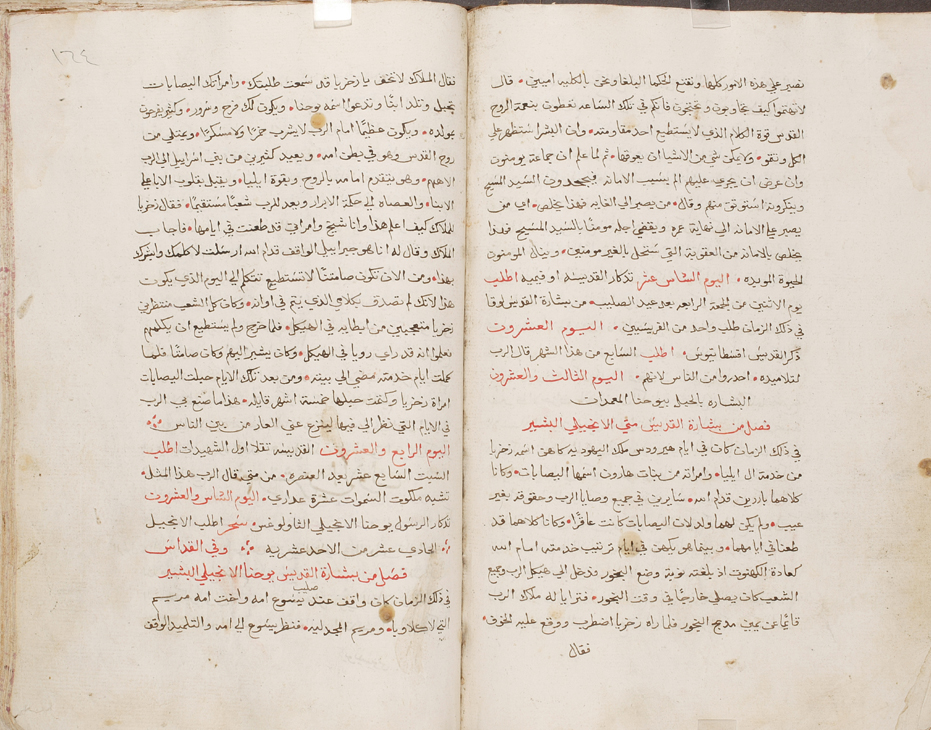 نصير على هذه الامور كلها ونقنع الحكما البلغا ونحن بالكليه اميين • قال
لا تهتموا كيف تجاوبون وتحتجون فانكم في تلك الساعه تعطون بنعمة الروح
القدس قوة الكلام الذي لا يستطيع احد مقاومته • وان البشر استظهر على
الكل ونقو • ولا يمكن شي من الاشيا ان يعوقها • ثم لما علم ان جماعة يومنون
وان عرض ان يجري عليهم الم بسبب الامانه فيجحدون السيد المسيح
وينكرونه استوثق منهم وقال • من يصبر الى الغايه فهذا يخلص • اي من
يصبر على الامانه الى نهاية عمره ويقضي اجله مومنا بالسيد المسيح فهذا
يخلص بالامانه من العقوبة التي ستحل بالغير مومنين • وينال المومنون
الحيوة الموبده • اليوم السادس عشر تذكار القديسه اوفيميه اطلب
يوم الاثنين من الجمعة الرابعه بعد عيد الصليب • من بشارة القديس لوقا
في ذلك الزمان طلب واحد من الفريسيين • اليوم العشرون
ذكر القديس افسطاتيوس • اطلب السابع من هذا الشهر قال الرب
لتلاميذه • احذروا من الناس لانهم • اليوم الثالث والعشرون
البشاره بالحبل بيوحنا المعمدان
فصل من بشارة القديس متى الانجيلي البشير
في ذلك الزمان كان في ايام هيرودس ملك اليهوديه كاهن اسمه زخريا
من خدمة ال ابيا • وامراته من بنات هارون اسمها اليصابات • وكانا
كلاهما بارين قدام الله • سايرين في جميع وصايا الرب وحقوقه بغير
عيب • ولم يكن لهما ولد لان اليصابات كانت عاقرا • وكانا كلاهما قد
طعنا في ايامهما • وبينما هو يكهن في ايام ترتيب خدمته امام الله
كعادة الكهنوت اذ بلغته نوبة وضع البخور ودخل الى هيكل الرب وجميع
الشعب كان يصلي خارجا في وقت البخور • فترايا له ملاك الرب
قايما عن يمين مذبح البخور فلما راه زخريا اضطرب ووقع عليه الخوف •
فقال
١٦٤
فقال الملاك لا تخف يا زخريا قد سمعت طلبتك • وامراتك اليصابات
تحبل وتلد ابنا وتدعوا اسمه يوحنا • ويكون لك فرح وسرور • وكثير يفرحون
بمولده • ويكون عظيما امام الرب لا يشرب خمرا ولا مسكرا • ويمتلي من
روح القدس وهو في بطن امه • ويعيد كثيرين من بني اسراييل الى الرب
الاههم • وهو يتقدم امامه بالروح وبقوة ايليا • ويقبل بقلوب الابا على
الابنا • والعصاه الى حكمة الابرار ويعد للرب شعبا مستقيما • فقال زخريا
للملاك كيف اعلم هذا وانا شيخ وامراتي قد طعنت في ايامها • فاجاب
الملاك وقال له انا هو جبراييل الواقف قدام الله ارسلت لاكلمك وابشرك
بهذا • ومن الان تكون صامتا لا تستطيع تتكلم الى اليوم الذي يكون
هذا لانك لم تصدق بكلامي الذي يتم في اوانه • وكان كل الشعب منتظرين
زخريا متعجبين من ابطايه في الهيكل • فلما خرج ولم يستطيع ان يكلمهم
فعلموا انه قد راى رويا في الهيكل • وكان يشير اليهم وكان صامتا فلما
كملت ايام خدمته مضى الى بيته • ومن بعد تلك الايام حبلت اليصابات
امراة زخريا وكتمت حبلها خمسة اشهر قايله • هذا ما صنع بي الرب
في الايام التي نظر الي فيها لينزع عني العار من بين الناس
اليوم الرابع والعشرون القديسه تقلا اول الشهيدات اطلب
السبت السابع عشر بعد العنصره • من متى قال الرب هذا المثل •
تشبه ملكوت السموات عشرة عذارى • اليوم السادس والعشرون
تذكار الرسول يوحنا الانجيلي الثاولوغس • سحر اطلب الانجيل
الحادي عشر من الاحد عشريه وفي القداس
فصل من بشارة القديس يوحنا الانجيلي البشير
في ذلك الزمان كان واقف عند صليب يسوع امه واخت امه مريم
التي لاكلاوبا • ومريم المجدليه • فنظر يسوع الى امه والتلميذ الواقف